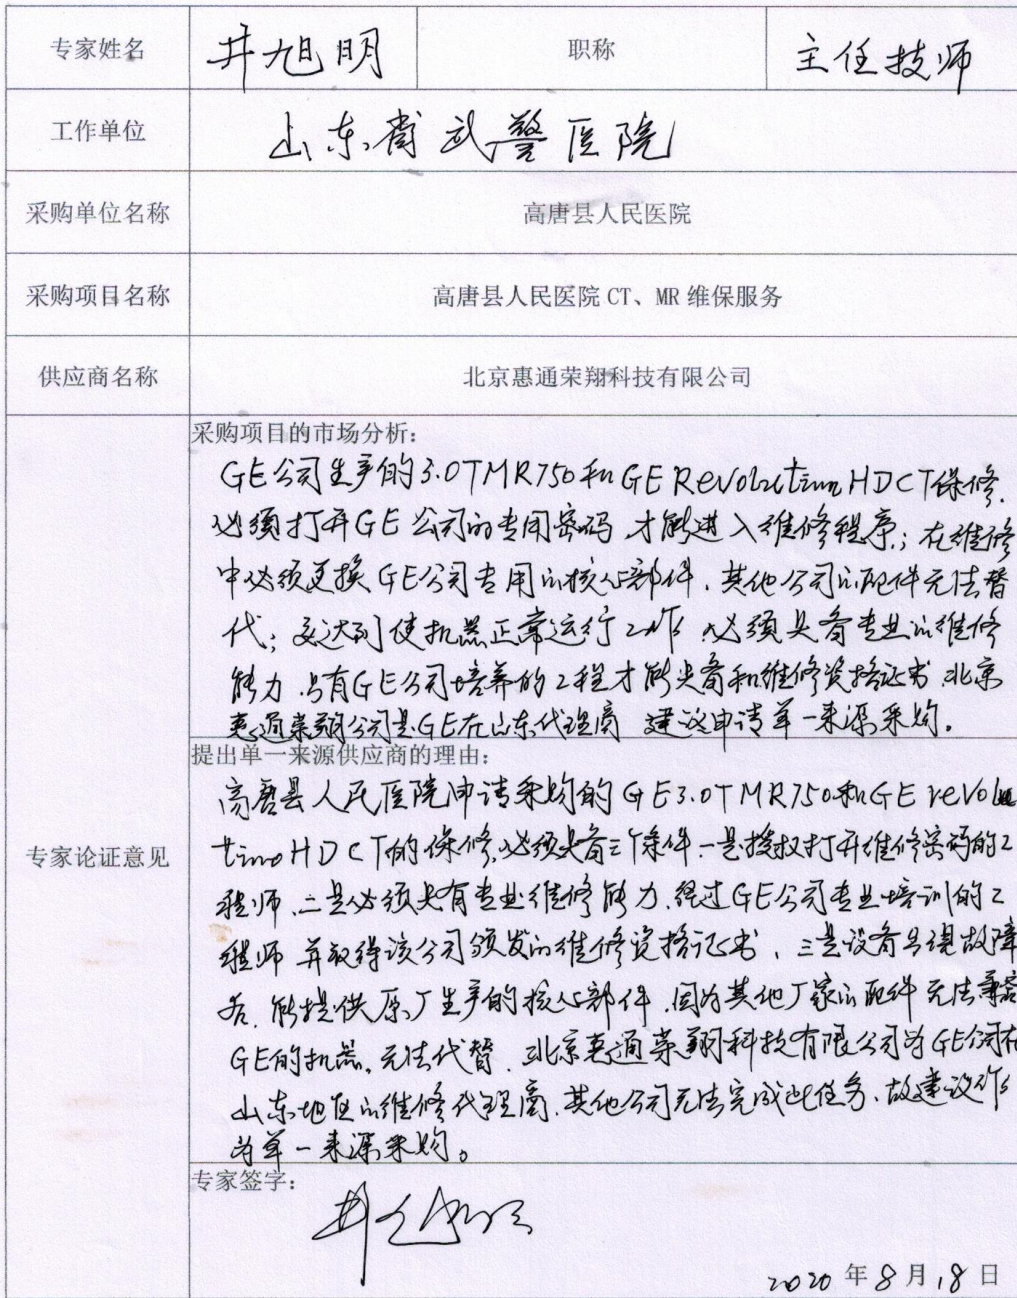 专家姓名 井旭明 职称 主任技师
工作单位 山东省武警医院
采购单位名称 高唐县人民医院
采购项目名称 高唐县人民医院 CT、MR 维保服务
供应商名称 北京惠通荣翔科技有限公司
专家论证意见
采购项目的市场分析：
GE公司生产的3.0TMR750和GE Revolution HDCT保修,
必须打开GE公司的专用密码,才能进入维修程序；在维修
中必须更换GE公司专用的核心部件,其他公司的配件无法替
代；要达到使机器正常运行工作,必须具备专业的维修
能力,只有GE公司培养的工程才能具备和维修资格证书,北京
惠通荣翔公司是GE在山东代理商 建议申请单一来源采购。
提出单一来源供应商的理由：
高唐县人民医院申请采购的GE3.0TMR750和GE revolu
tion HDCT的保修,必须具备三个条件,一是授权打开维修密码的工
程师,二是必须具有专业维修能力,经过GE公司专业培训的工
程师 并取得该公司颁发的维修资格证书,三是设备出现故障
后,能提供原厂生产的核心部件,因为其他厂家的配件无法兼容
GE的机器,无法代替,北京惠通荣翔科技有限公司为GE公司在
山东地区的维修代理商,其他公司无法完成此任务,故建议作
为单一来源采购。
专家签字：
井旭明
2020年8月18日